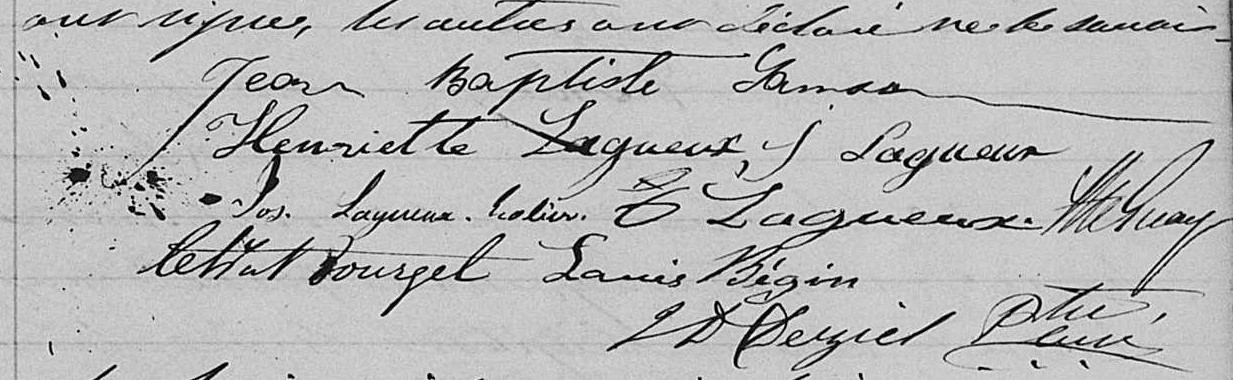 ont signé, les autres ont déclaré ne le savoir
Jean Baptiste Samson
Henriette Lagueux, J Lagueux
Jos. Lagueux. E Lagueux.
Bourget Louis Bégin
Déziel Ptre,
Curé